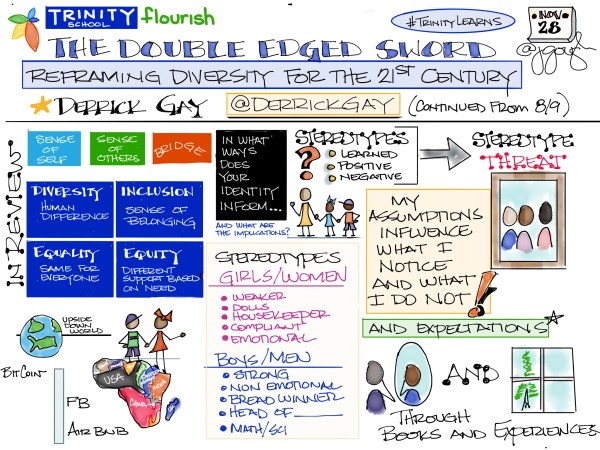 TRINITY
SCHOOL
flourish
#TRINITYLEARNS
NOV
28
@jgough
THE DOUBLE EDGED SWORD
REFRAMING DIVERSITY FOR THE 21ST CENTURY
DERRICK GAY @DERRICKGAY (CONTINUED FROM 8/9)
IN REVIEW
SENSE OF SELF
SENSE OF OTHERS
BRIDGE
DIVERSITY
HUMAN DIFFERENCE
INCLUSION
SENSE OF BELONGING
EQUALITY
SAME FOR EVERYONE
EQUITY
DIFFERENT SUPPORT BASED ON NEED
IN WHAT
WAYS
DOES
YOUR
IDENTITY
INFORM...
AND WHAT ARE
THE IMPLICATIONS?
STEREOTYPES
?
LEARNED
POSITIVE
NEGATIVE
STEREOTYPE
THREAT
MY
ASSUMPTIONS
INFLUENCE
WHAT I
NOTICE
AND WHAT
I DO NOT!
AND EXPECTATIONS
STEREOTYPES
GIRLS/WOMEN
• WEAKER
• DOLLS
• HOUSEKEEPER
• COMPLIANT
• EMOTIONAL
BOYS/MEN
• STRONG
• NON EMOTIONAL
• BREAD WINNER
• HEAD OF ______
• MATH/SCI
UPSIDE
DOWN
WORLD
BITCOIN
FB
AIRBNB
USA
CHINA
INDIA
AND
THROUGH
BOOKS AND EXPERIENCES